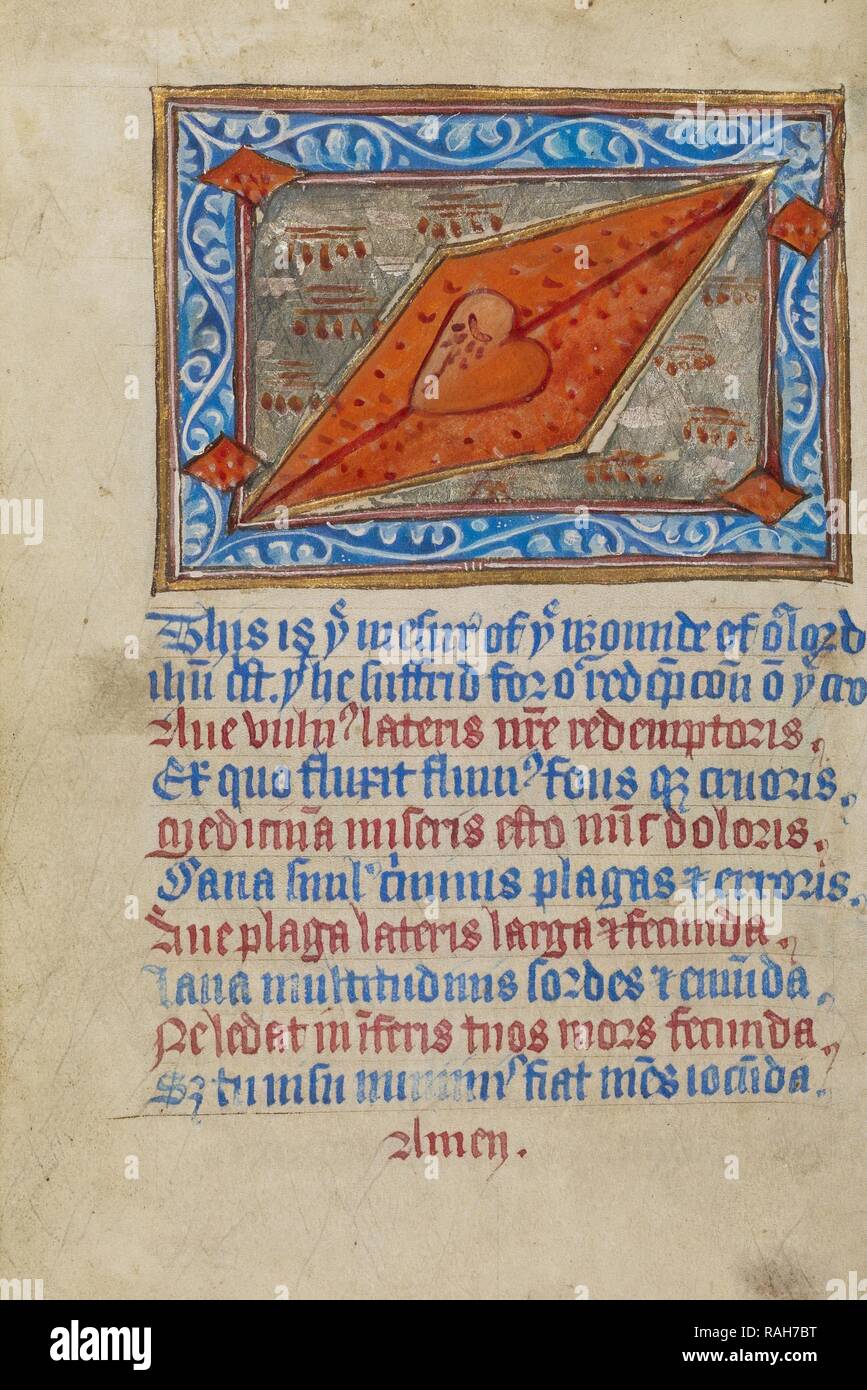 This is yͤ mesur of yͤ wounde of oͬ lord
ihū cst. yͭ he suffrid for oͬ redēpcoū o yͤ cro
Aue vulnꝰ lateris nr̄e redemptoris.
Ex quo fluxit fluuiꝰ fons qꝫ cruoris.
Medicina miseris esto doloris.
Sana simul cͥminis plagas ⁊ erroris.
Aue plaga lateris larga ⁊ fecunda.
Laua multitudinis sordes ⁊ emūda.
Ne ledat inferis tuos mors fecunda.
Sꝫ tu fiat mēs iocūda.
Amen.
alamy
Image ID: RAH7BT
www.alamy.com